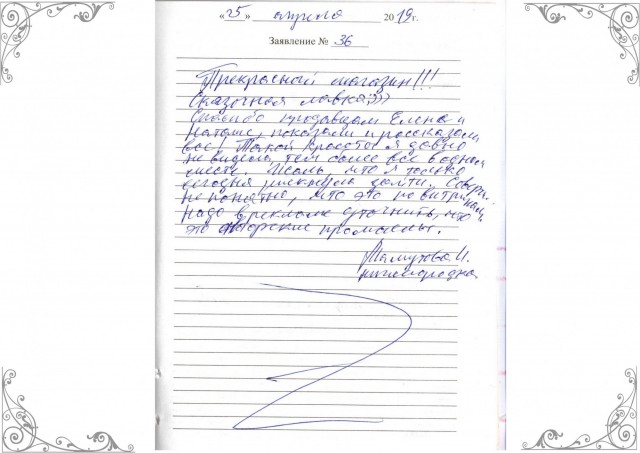 « 25 » апреля 2019 г.
Заявление № 36
Прекрасный магазин!!!
Сказочная лавка:)))
Спасибо продавцам Елена и
Наташе, показали и рассказали
всё! Такой красоты я давно
не видела, тем более всё в одном
месте. Жаль, что я только
сегодня рискнула зайти. Соверш.
не понятно, что это по витринам,
надо в рекламе уточнить, что
это авторские промыслы.
нижегородка